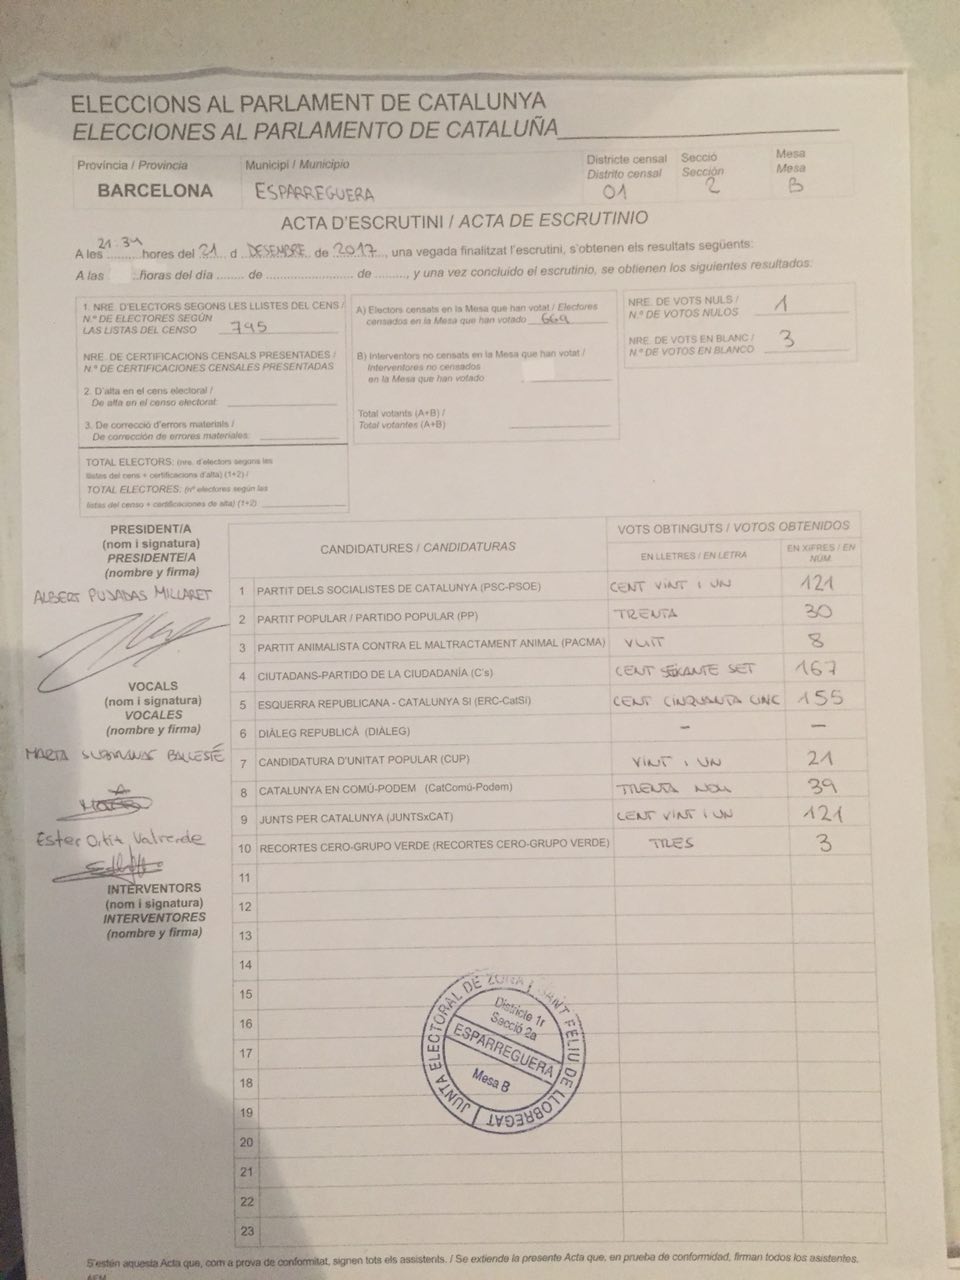 ELECCIONS AL PARLAMENT DE CATALUNYA
ELECCIONES AL PARLAMENTO DE CATALUÑA
Província / Provincia
BARCELONA
Municipi / Municipio
ESPARREGUERA
Districte censal
Distrito censal
01
Secció
Sección
2
Mesa
Mesa
B
ACTA D'ESCRUTINI / ACTA DE ESCRUTINIO
A les 21:34 hores del 21 d DESEMBRE de 2017, una vegada finalitzat l'escrutini, s'obtenen els resultats següents:
A las ..horas del día ....... de ...................... de ........, y una vez concluido el escrutinio, se obtienen los siguientes resultados:
1. NRE. D'ELECTORS SEGONS LES LLISTES DEL CENS /
N.º DE ELECTORES SEGÚN
LAS LISTAS DEL CENSO 795
NRE. DE CERTIFICACIONS CENSALS PRESENTADES /
N.º DE CERTIFICACIONES CENSALES PRESENTADAS
2. D'alta en el cens electoral /
De alta en el censo electoral:
3. De correcció d'errors materials /
De corrección de errores materiales:
TOTAL ELECTORS: (nre. d'electors segons les
llistes del cens + certificacions d'alta) (1+2) /
TOTAL ELECTORES: (nº electores según las
listas del censo + certificaciones de alta) (1+2)
A) Electors censats en la Mesa que han votat / Electores
censados en la Mesa que han votado 669
B) Interventors no censats en la Mesa que han votat /
Interventores no censados
en la Mesa que han votado
Total votants (A+B) /
Total votantes (A+B)
NRE. DE VOTS NULS /
N.º DE VOTOS NULOS 1
NRE. DE VOTS EN BLANC /
N.º DE VOTOS EN BLANCO 3
PRESIDENT/A
(nom i signatura)
PRESIDENTE/A
(nombre y firma)
ALBERT PUJADAS MILLARET
VOCALS
(nom i signatura)
VOCALES
(nombre y firma)
MARTA BALLESTÉ
Ester Ortiz Valverde
INTERVENTORS
(nom i signatura)
INTERVENTORES
(nombre y firma)
CANDIDATURES / CANDIDATURAS
VOTS OBTINGUTS / VOTOS OBTENIDOS
EN LLETRES / EN LETRA
EN XIFRES / EN
NÚM.
1 PARTIT DELS SOCIALISTES DE CATALUNYA (PSC-PSOE) CENT VINT I UN 121
2 PARTIT POPULAR / PARTIDO POPULAR (PP) TRENTA 30
3 PARTIT ANIMALISTA CONTRA EL MALTRACTAMENT ANIMAL (PACMA) VUIT 8
4 CIUTADANS-PARTIDO DE LA CIUDADANÍA (C's) CENT SEIXANTE SET 167
5 ESQUERRA REPUBLICANA - CATALUNYA SI (ERC-CatSí) CENT CINQUANTA CINC 155
6 DIÀLEG REPUBLICÀ (DIÀLEG) - -
7 CANDIDATURA D'UNITAT POPULAR (CUP) VINT I UN 21
8 CATALUNYA EN COMÚ-PODEM (CatComú-Podem) TRENTA NOU 39
9 JUNTS PER CATALUNYA (JUNTSxCAT) CENT VINT I UN 121
10 RECORTES CERO-GRUPO VERDE (RECORTES CERO-GRUPO VERDE) TRES 3
11
12
13
14
15
16
17
18
19
20
21
22
23
JUNTA ELECTORAL DE ZONA SANT FELIU DE LLOBREGAT
Districte 1r
Secció 2a
ESPARREGUERA
Mesa B
S'estén aquesta Acta que, com a prova de conformitat, signen tots els assistents. / Se extiende la presente Acta que, en prueba de conformidad, firman todos los asistentes.